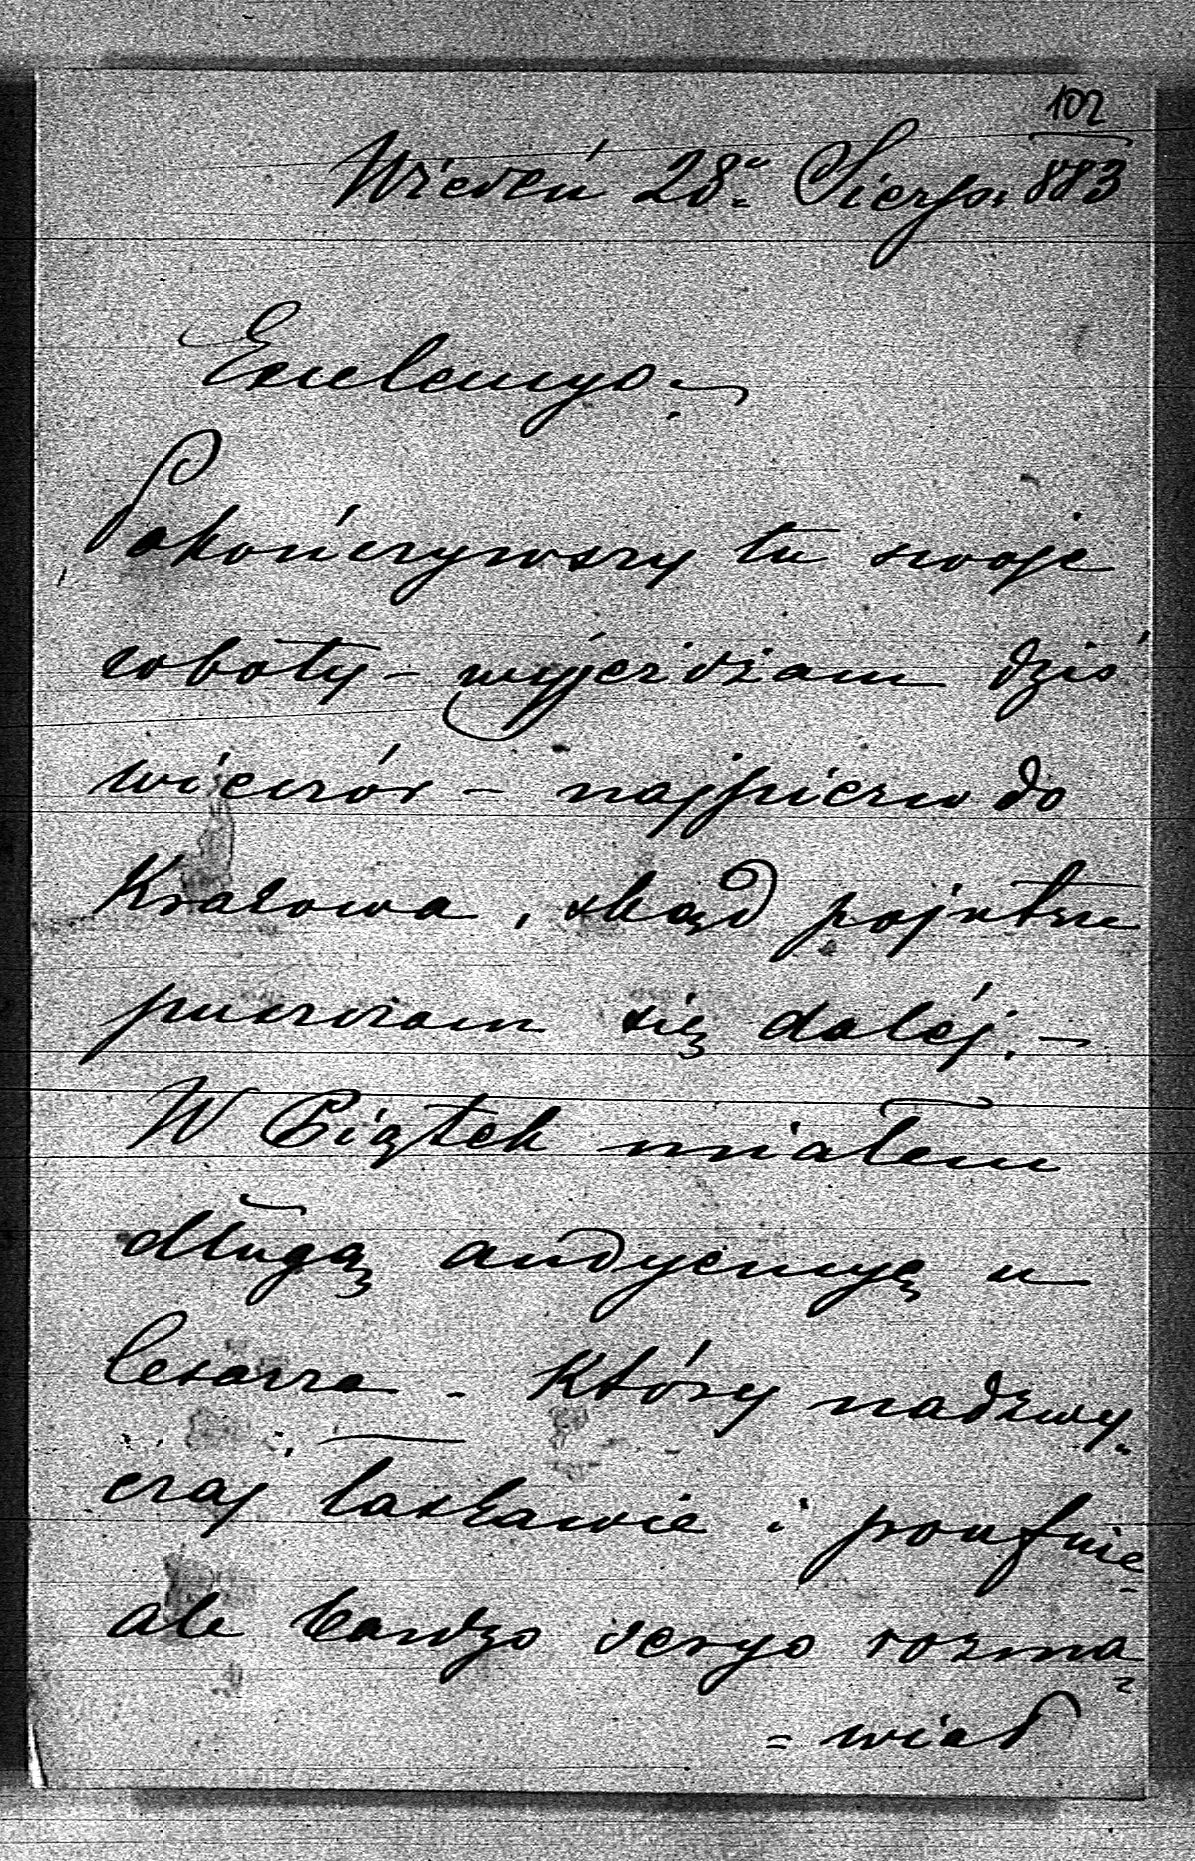 102
Wiedeń 28.º Sierpn: 883
Excelencyo. –
Pokończywszy tu swoje
roboty – wyjeżdżam dziś
wieczór – najpierw do
Krakowa, skąd pojutrze
puszczam się daléj. –
W Piątek miałem
długą audyencyę u
Cesarza – który nadzwy-
czaj łaskawie i poufnie
ale bardzo seryo rozma=
= wiał